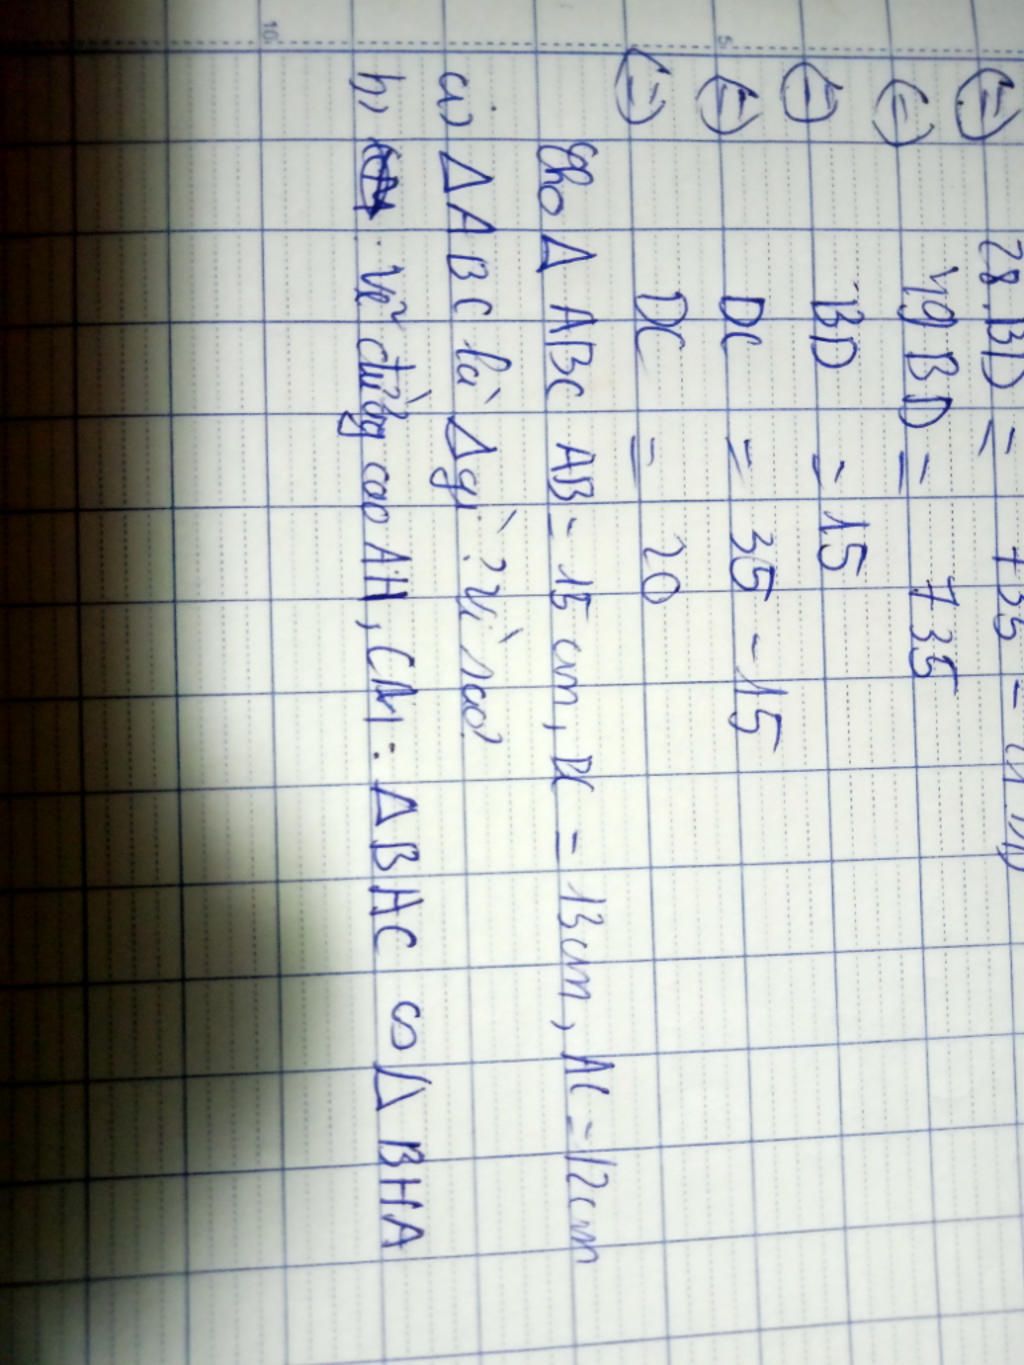 (=) 28.BD = 735 -
(=) 49 BD = 735
(=) BD = 15
(=) DC = 35 - 15
(=) DC = 20
Cho Δ ABC AB = 15 cm, BC = 13cm, AC = 12cm
a) Δ ABC là Δ gì? Vì sao?
b) Vẽ đường cao AH, CM: Δ BHC ∽ Δ BHA
10
5